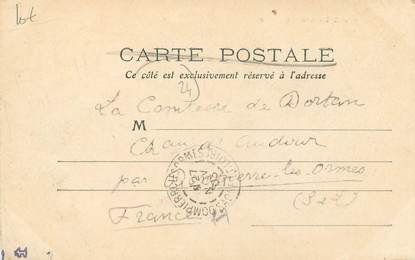 lot
CARTE POSTALE
Ce côté est exclusivement réservé à l'adresse
24
La Comtesse de Dortan
M
Chau d'Audour
par Dompierre-les-Ormes
(S & L)
France